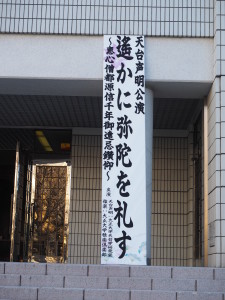 天台声明公演
遙かに弥陀を礼す
～恵心僧都源信千年御遠忌鑽仰～